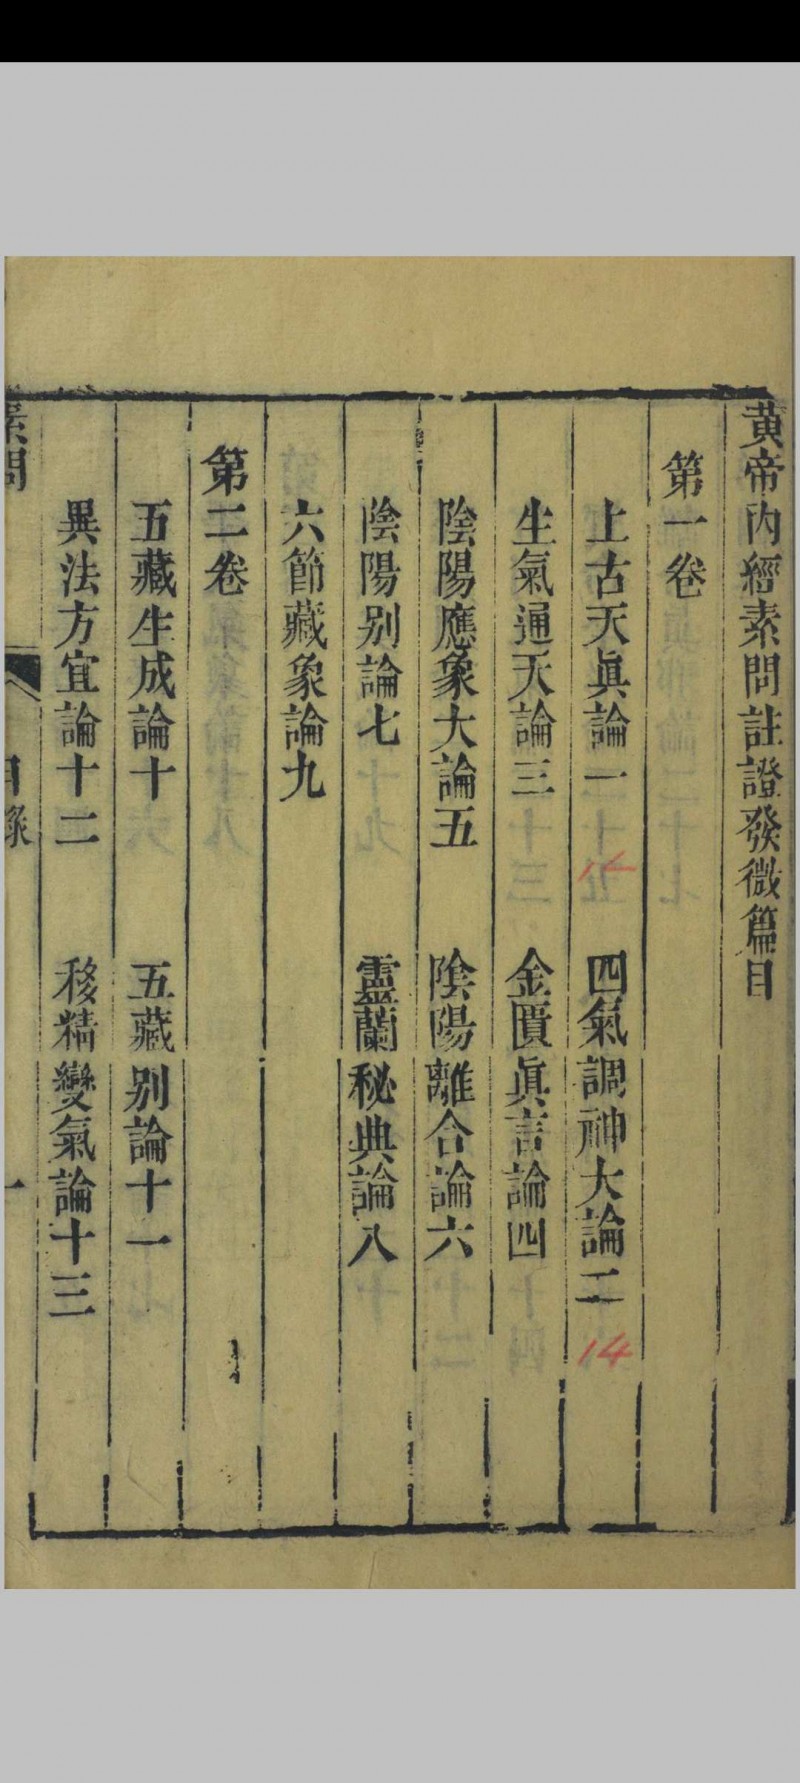 黄帝內經素問註證發微篇目
第一卷
上古天眞論一 四氣調神大論二
生氣通天論三 金匱眞言論四
陰陽應象大論五 陰陽離合論六
陰陽别論七 靈蘭秘典論八
六節藏象論九
第二卷
五藏生成論十 五藏别論十一
異法方宜論十二 移精變氣論十三
素問 目錄 一
14
14